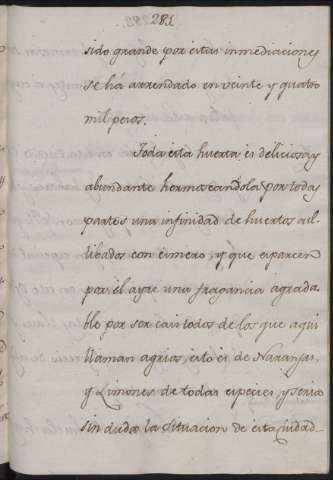 281
sido grande por estas inmediaciones
se há arrendado en veinte y quatro
mil pesos.
Toda esta huerta es deliciosa, y
abundante hermoseandola por todas
partes una infinidad de huertos cul-
tibados con esmero, y que esparcen
por el ayre una fragancia agrada-
ble por ser casi todos de los que aqui
llaman agrios, esto es de Naranjas,
y Limones de todas especies, y seria
sin duda la situacion de esta Ciudad